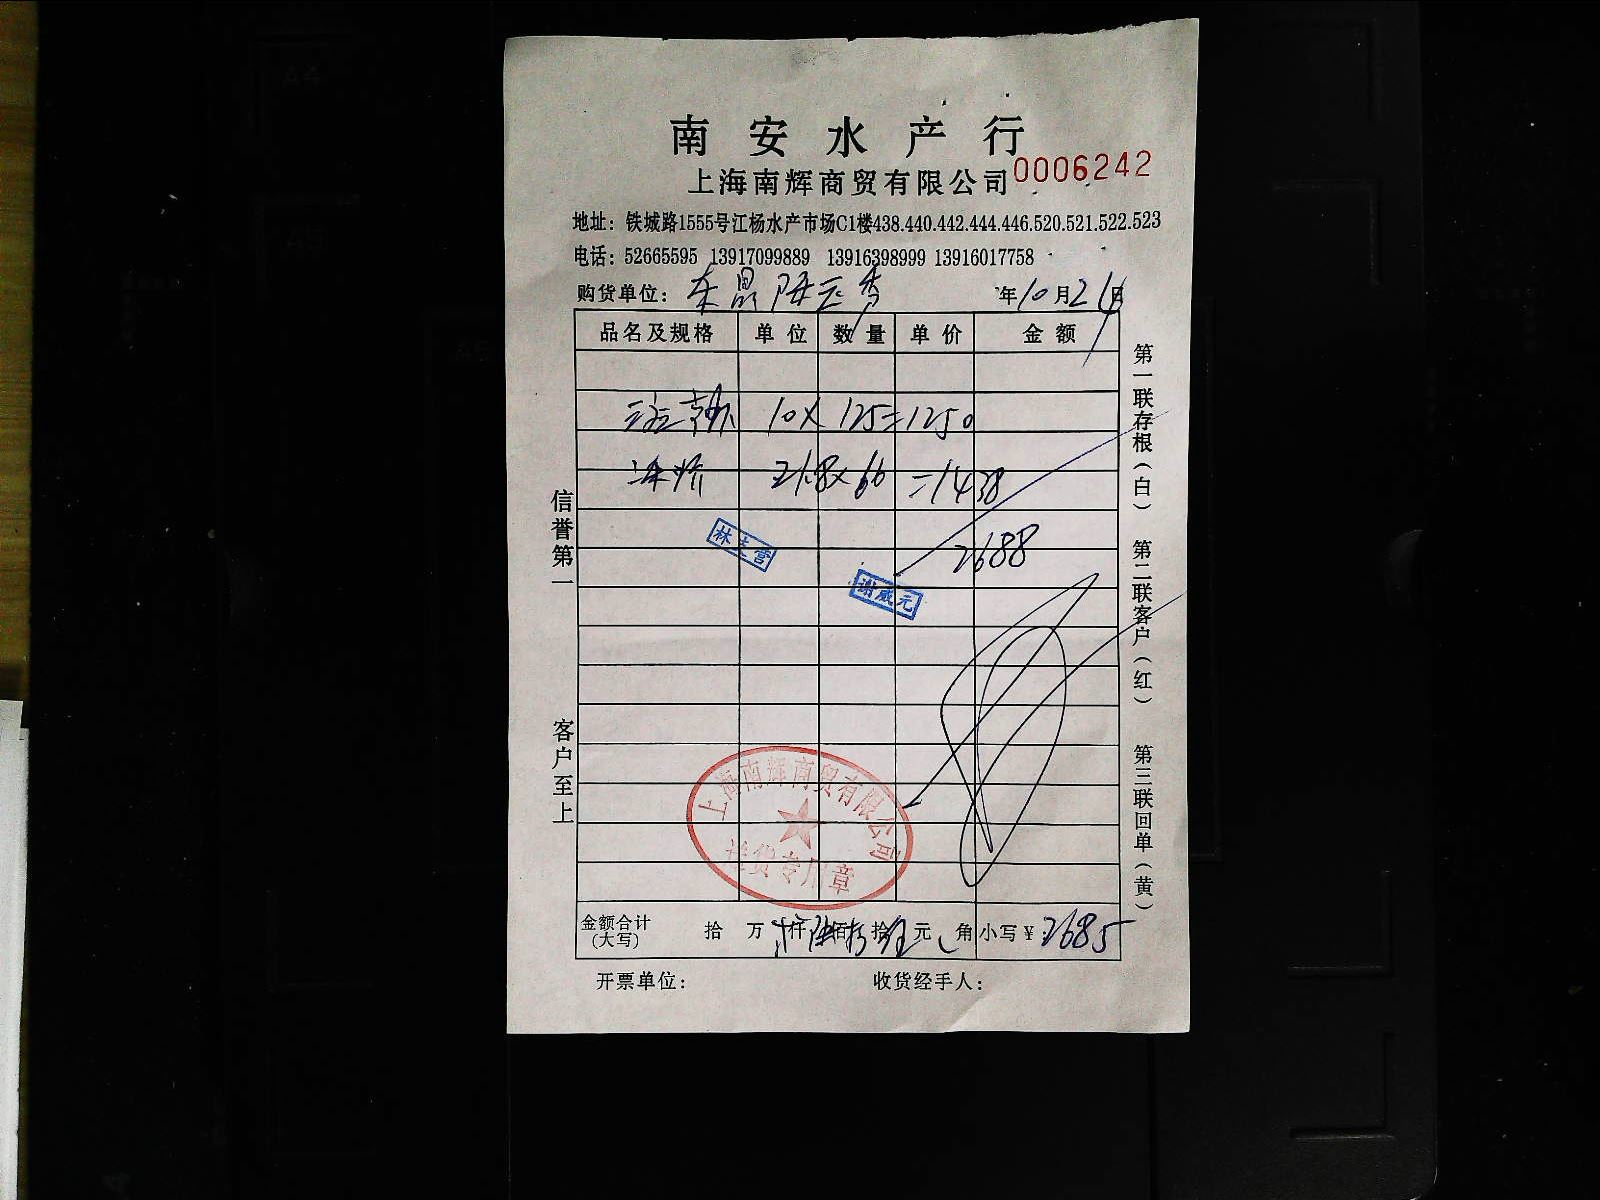 南安水产行
上海南辉商贸有限公司 0006242
地址：铁城路1555号江杨水产市场C1楼438.440.442.444.446.520.521.522.523
电话：52665595 13917099889 13916398999 13916017758
购货单位： 年10月21日
品名及规格 单位 数量 单价 金额
10× 125=1250
21.8×66 =1438
2688
林 营
谢威元
上海南辉商贸有限公司
专用章
金额合计(大写) 拾 万 仟 佰 拾 元 角 小写￥2685
开票单位： 收货经手人：
信誉第一 客户至上
第一联存根（白） 第二联客户（红） 第三联回单（黄）